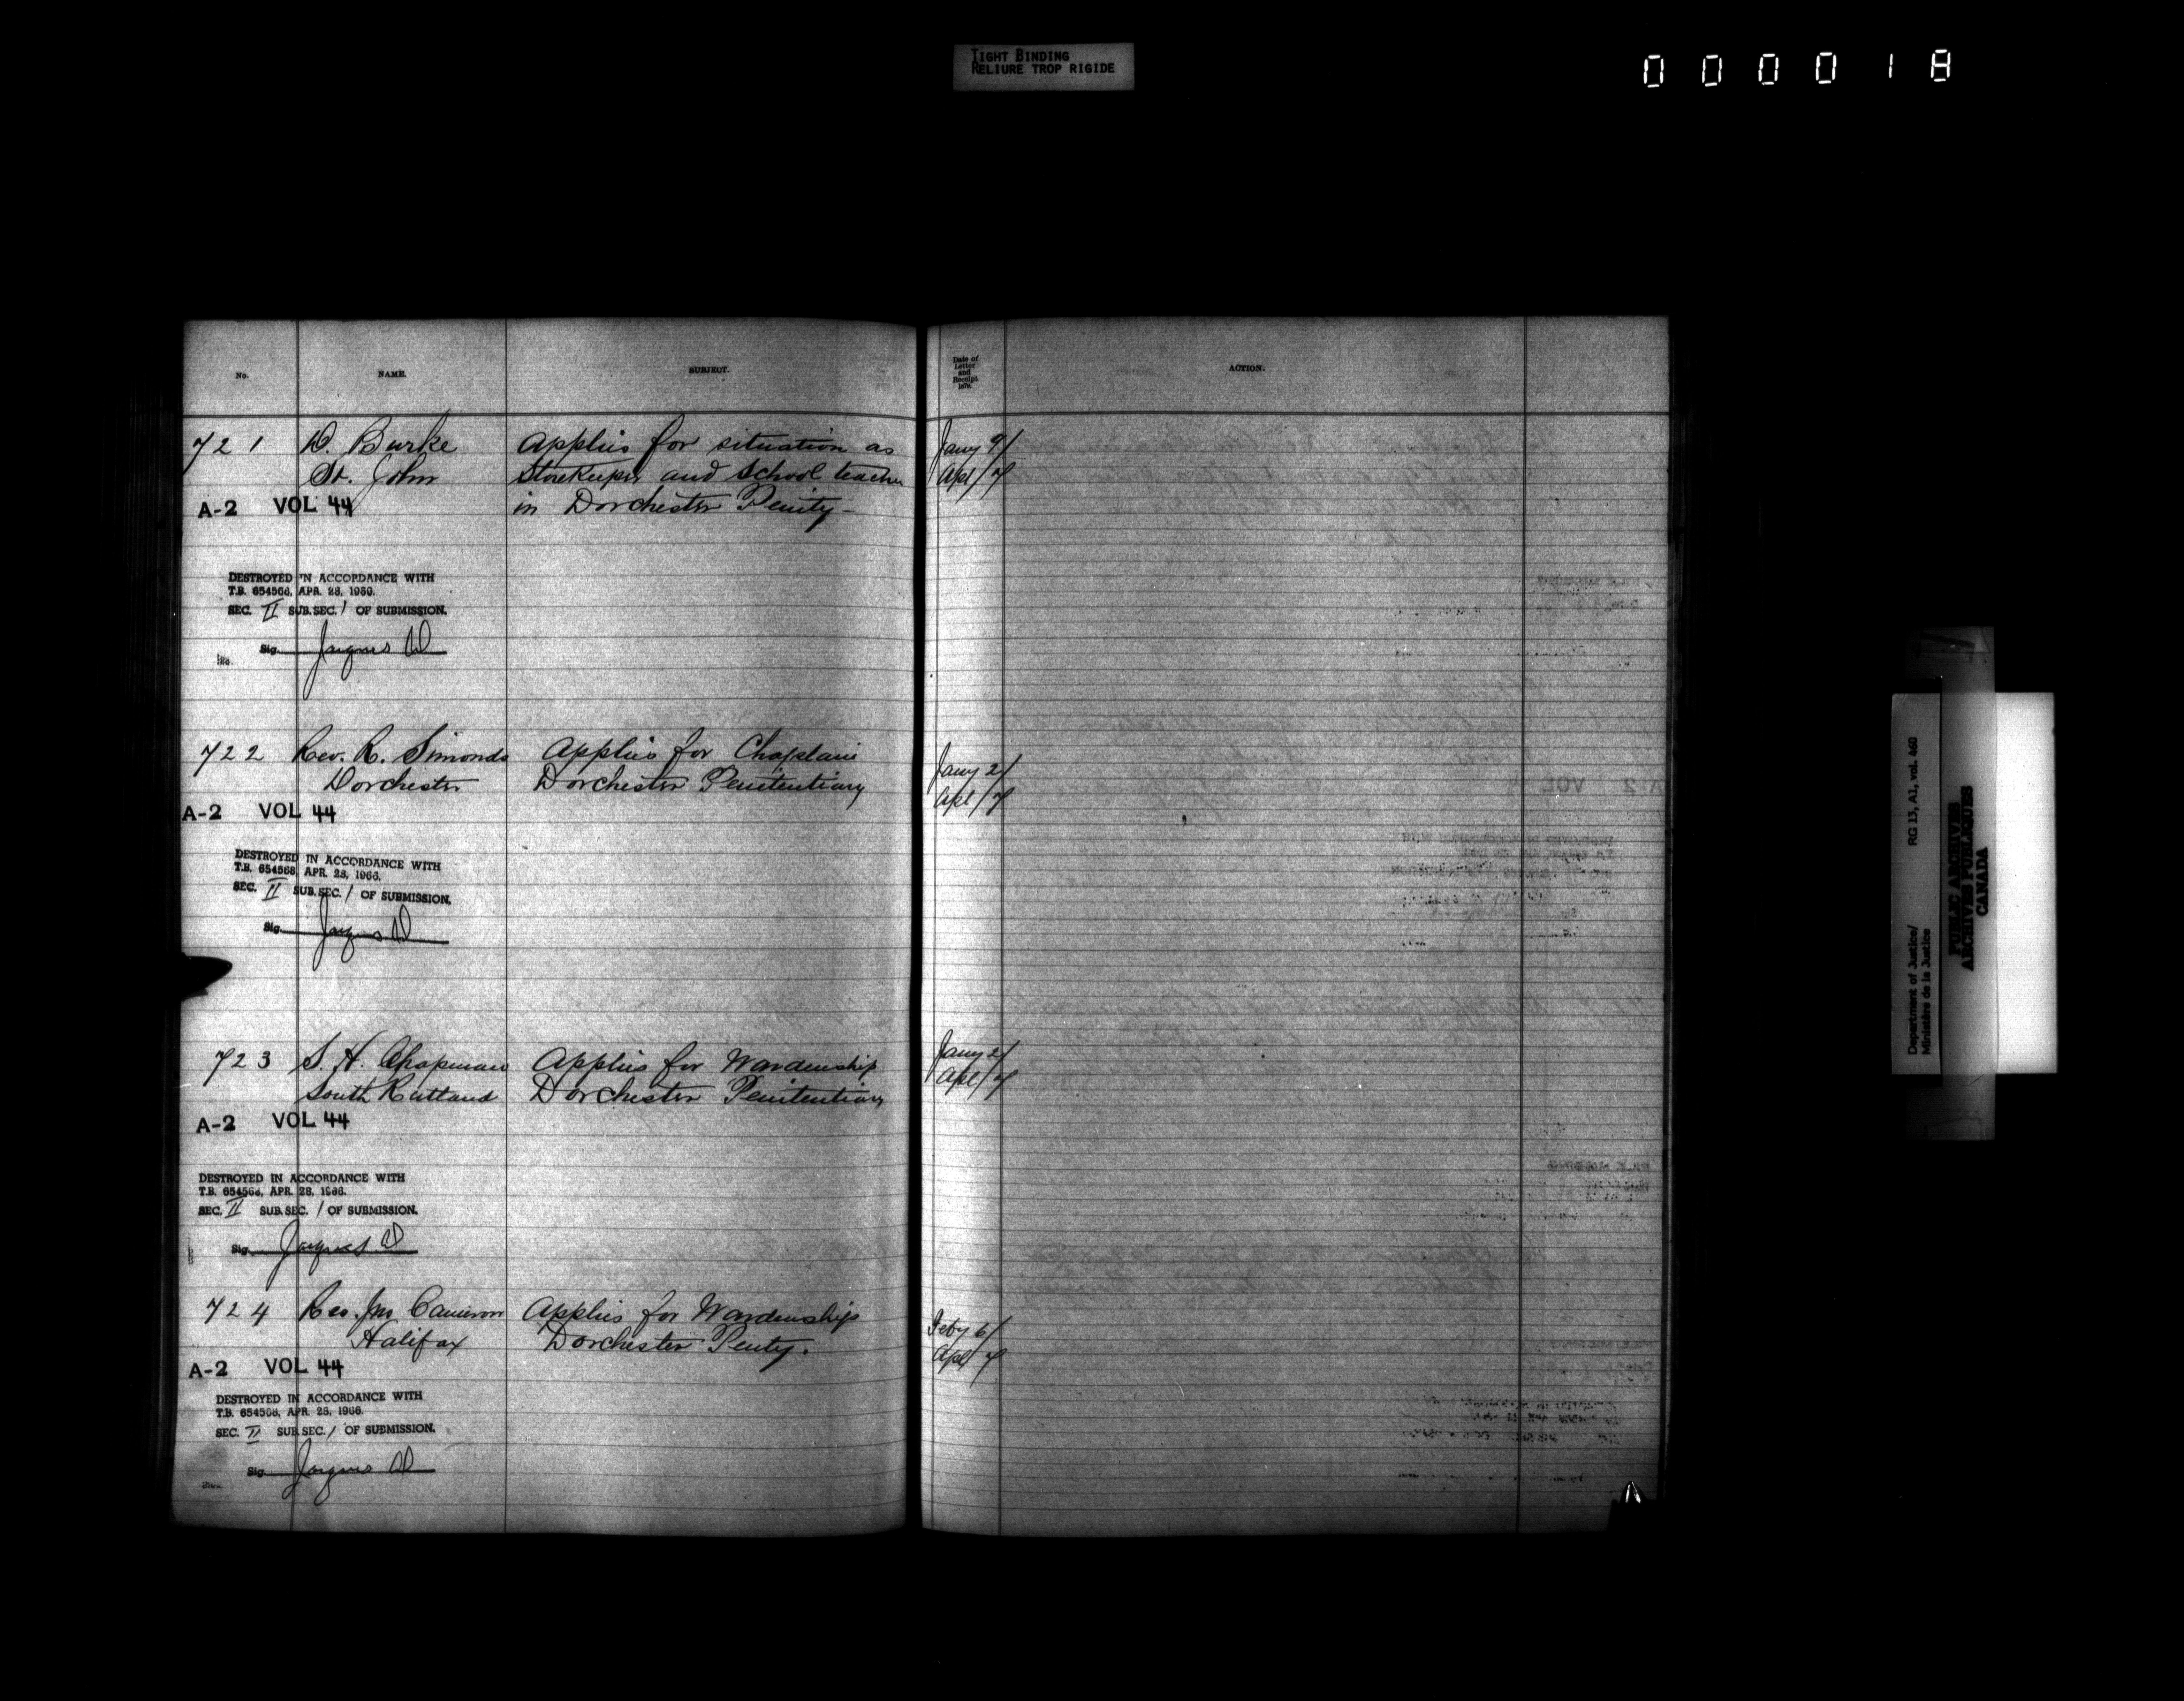 TIGHT BINDING
RELIURE TROP RIGIDE
000018
No.
NAME.
SUBJECT.
Date of
Letter
and
Receipt
ACTION.
721 D. Burke Applies for situation as Jany 9/
St. John Storekeeper and School teacher Apl/7
A-2 VOL 44 in Dorchester Penity-
DESTROYED IN ACCORDANCE WITH
T.B. 654568, APR. 28, 1966.
SEC. II SUB.SEC. 1 OF SUBMISSION.
Sig.
722 Rev. R. Simonds Applies for Chaplain Jany 2/
Dorchester Dorchester Penitentiary Apl/7
A-2 VOL 44
DESTROYED IN ACCORDANCE WITH
T.B. 654568, APR. 28, 1966.
SEC. II SUB.SEC. 1 OF SUBMISSION.
Sig.
723 S. H. Chapman Applies for Wardenship Jany 2/
South Rutland Dorchester Penitentiary Apl/7
A-2 VOL 44
DESTROYED IN ACCORDANCE WITH
T.B. 654568, APR. 28, 1966.
SEC. II SUB.SEC. 1 OF SUBMISSION.
Sig.
724 Rev. Jno Cameron Applies for Wardenship Feby 6/
Halifax Dorchester Penty. Apl/7
A-2 VOL 44
DESTROYED IN ACCORDANCE WITH
T.B. 654568, APR. 28, 1966.
SEC. II SUB.SEC. 1 OF SUBMISSION.
Sig.
Department of Justice/ RG 13, A1, vol. 460
Ministère de la Justice
PUBLIC ARCHIVES
ARCHIVES PUBLIQUES
CANADA